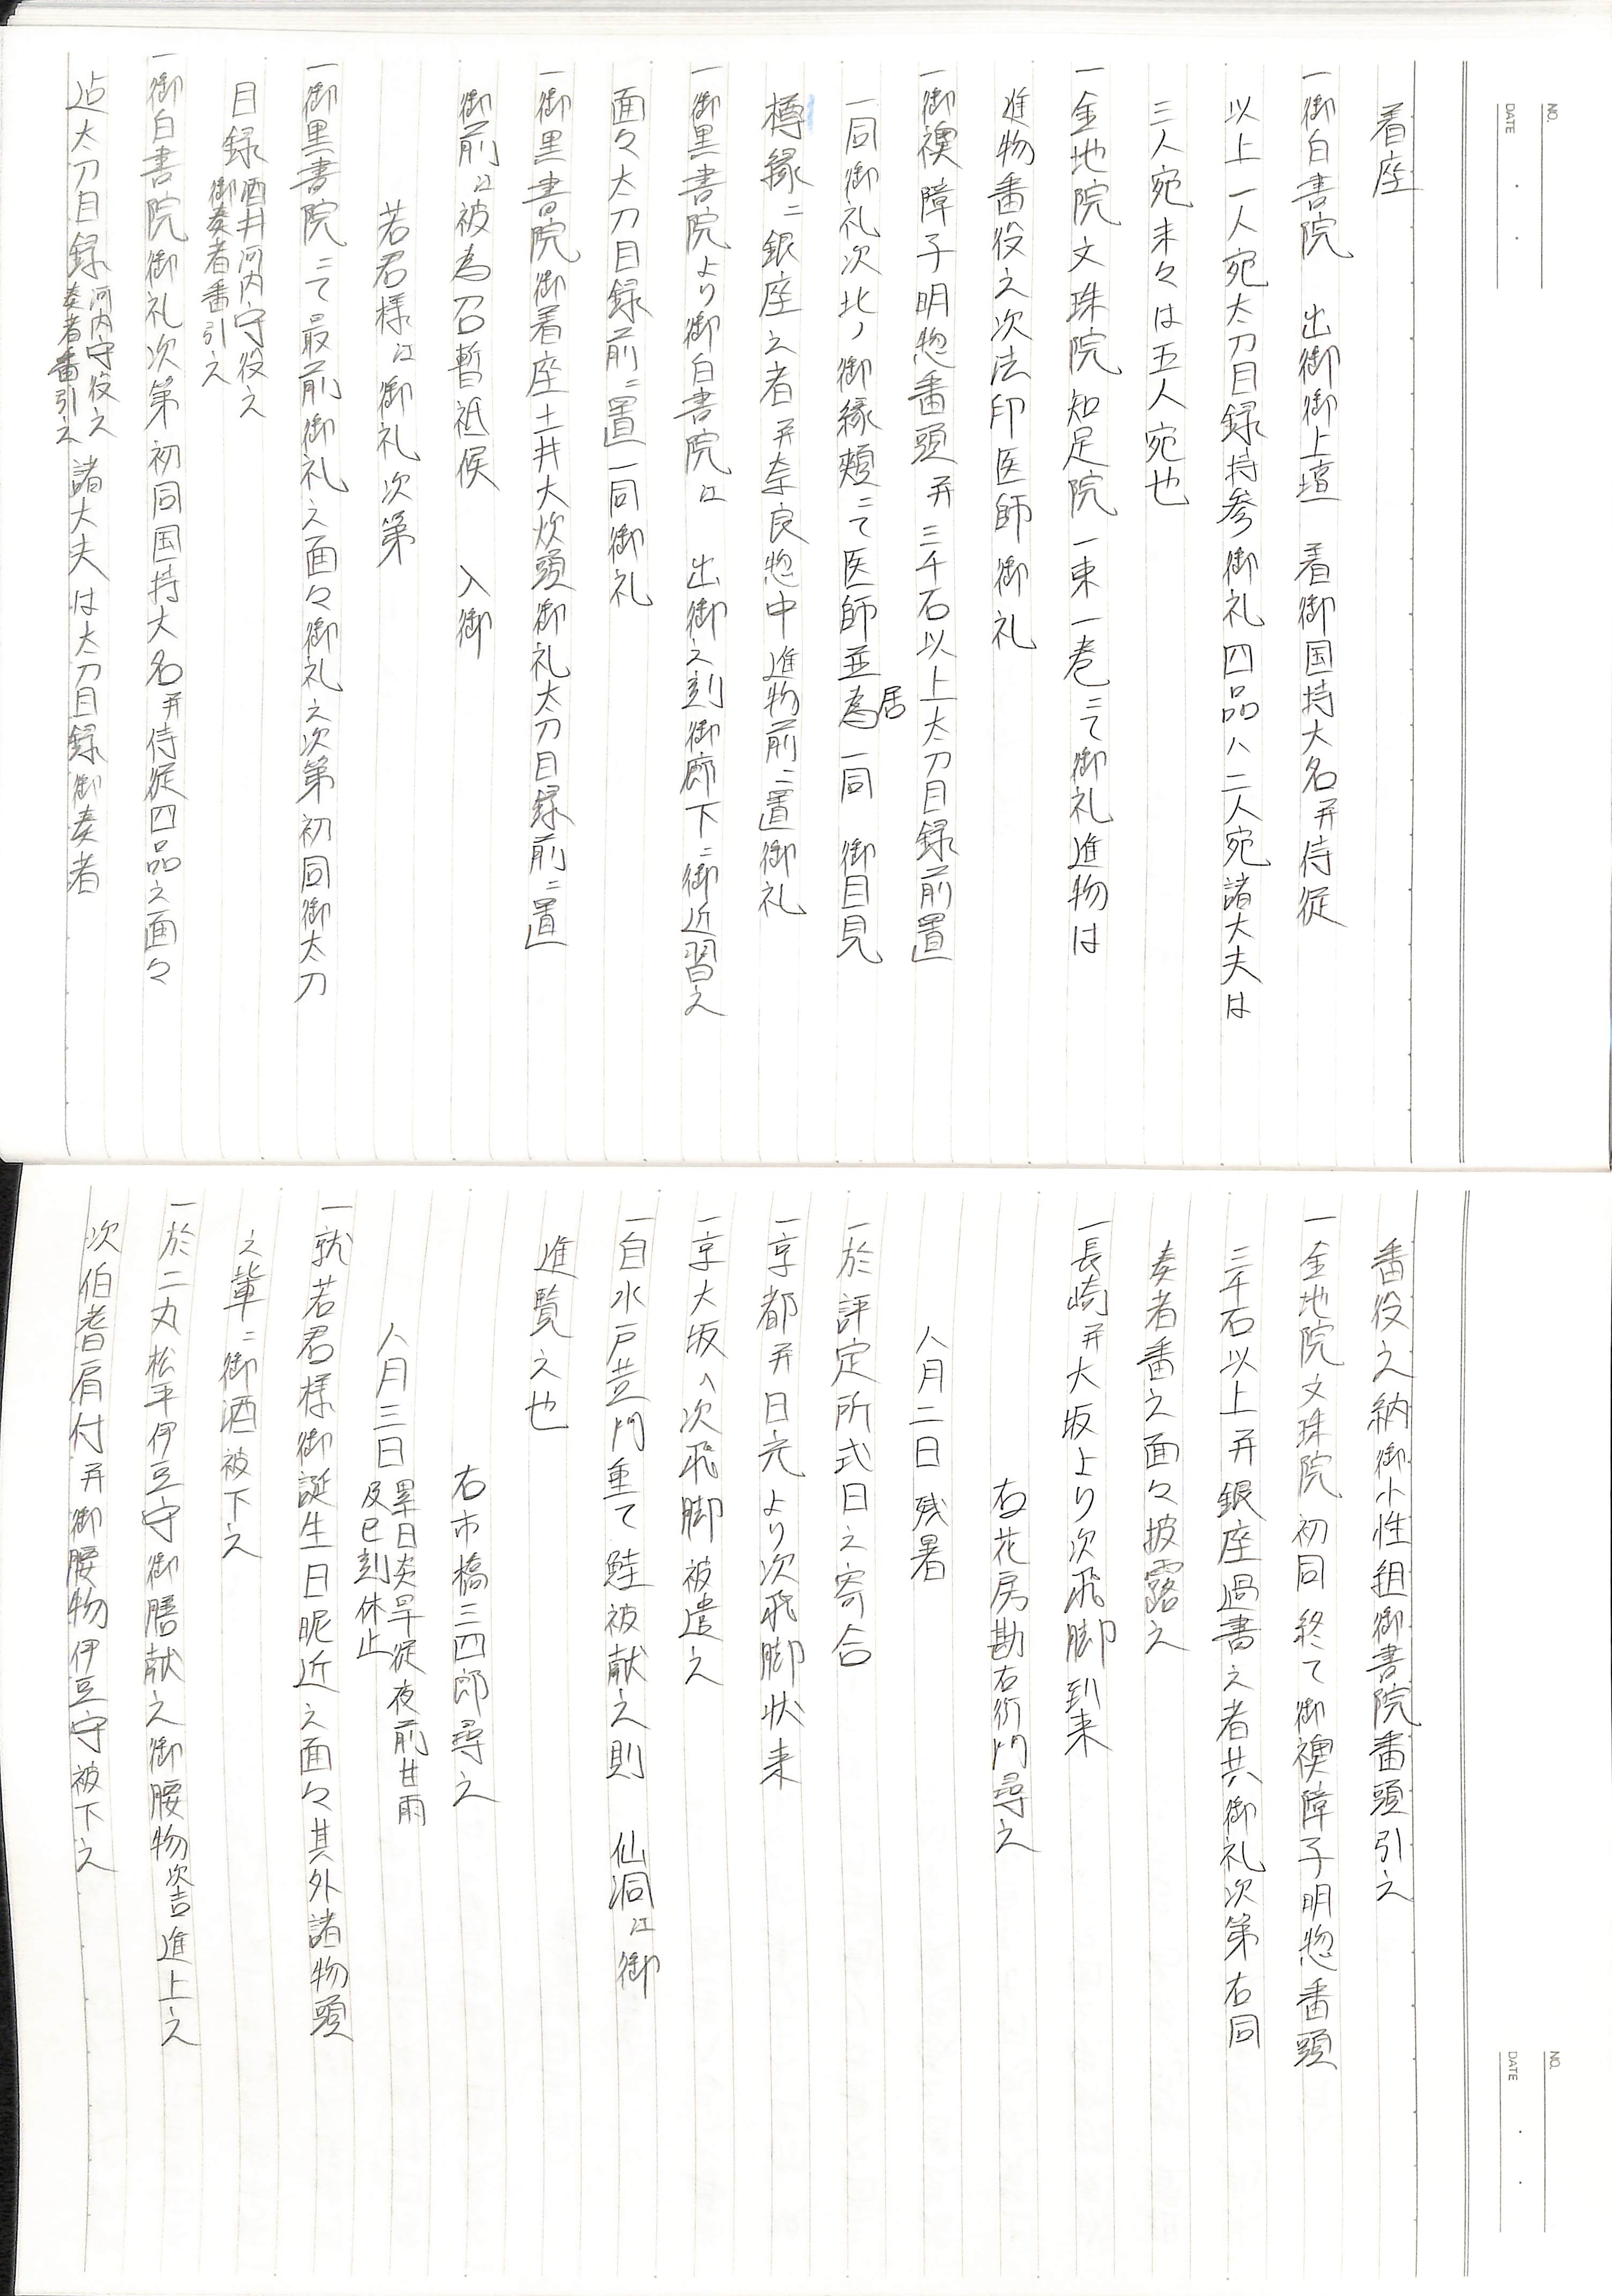 NO.
DATE
着座
一御白書院　出御御上壇　着御国持大名并侍従
以上一人宛太刀目録持参御礼四品ハ二人宛諸大夫は
三人宛末々は五人宛也
一金地院文珠院知足院一束一巻ニて御礼進物は
進物番役之次法印医師御礼
一御襖障子明惣番頭并三千石以上太刀目録前置
一同御礼次北ノ御縁頬ニて医師並為居一同　御目見
樽縁ニ銀座之者并奈良惣中進物前ニ置御礼
一御黒書院より御白書院江　出御之刻御廊下ニ御近習之
面々太刀目録前ニ置一同御礼
一御黒書院御着座土井大炊頭御礼太刀目録前ニ置
御前江被為召暫祗候　　入御
若君様江御礼次第
一御黒書院ニて最前御礼之面々御礼之次第初同御太刀
目録酒井河内守役之
御奏者番引之
一御白書院御礼次第初同国持大名并侍従四品之面々
迠太刀目録河内守役之
奏者番引之諸大夫は太刀目録御奏者
NO.
DATE
番役之納御小性組御書院番頭引之
一金地院文珠院初同終て御襖障子明惣番頭
三千石以上并銀座過書之者共御礼次第右同
奏者番之面々披露之
一長崎并大坂より次飛脚到来
右花房勘右衛門尋之
八月二日　残暑
一於評定所式日之寄合
一京都并日光より次飛脚状来
一京大坂へ次飛脚被遣之
一自水戸黄門重て鮭被献之則　仙洞江御
進覧之也
右市橋三四郎尋之
八月三日累日炎旱従夜前甘雨
及巳刻休止
一就若君様御誕生日昵近之面々其外諸物頭
之輩ニ御酒被下之
一於二丸松平伊豆守御膳献之御腰物次吉進上之
次伯耆肩付并御腰物伊豆守被下之